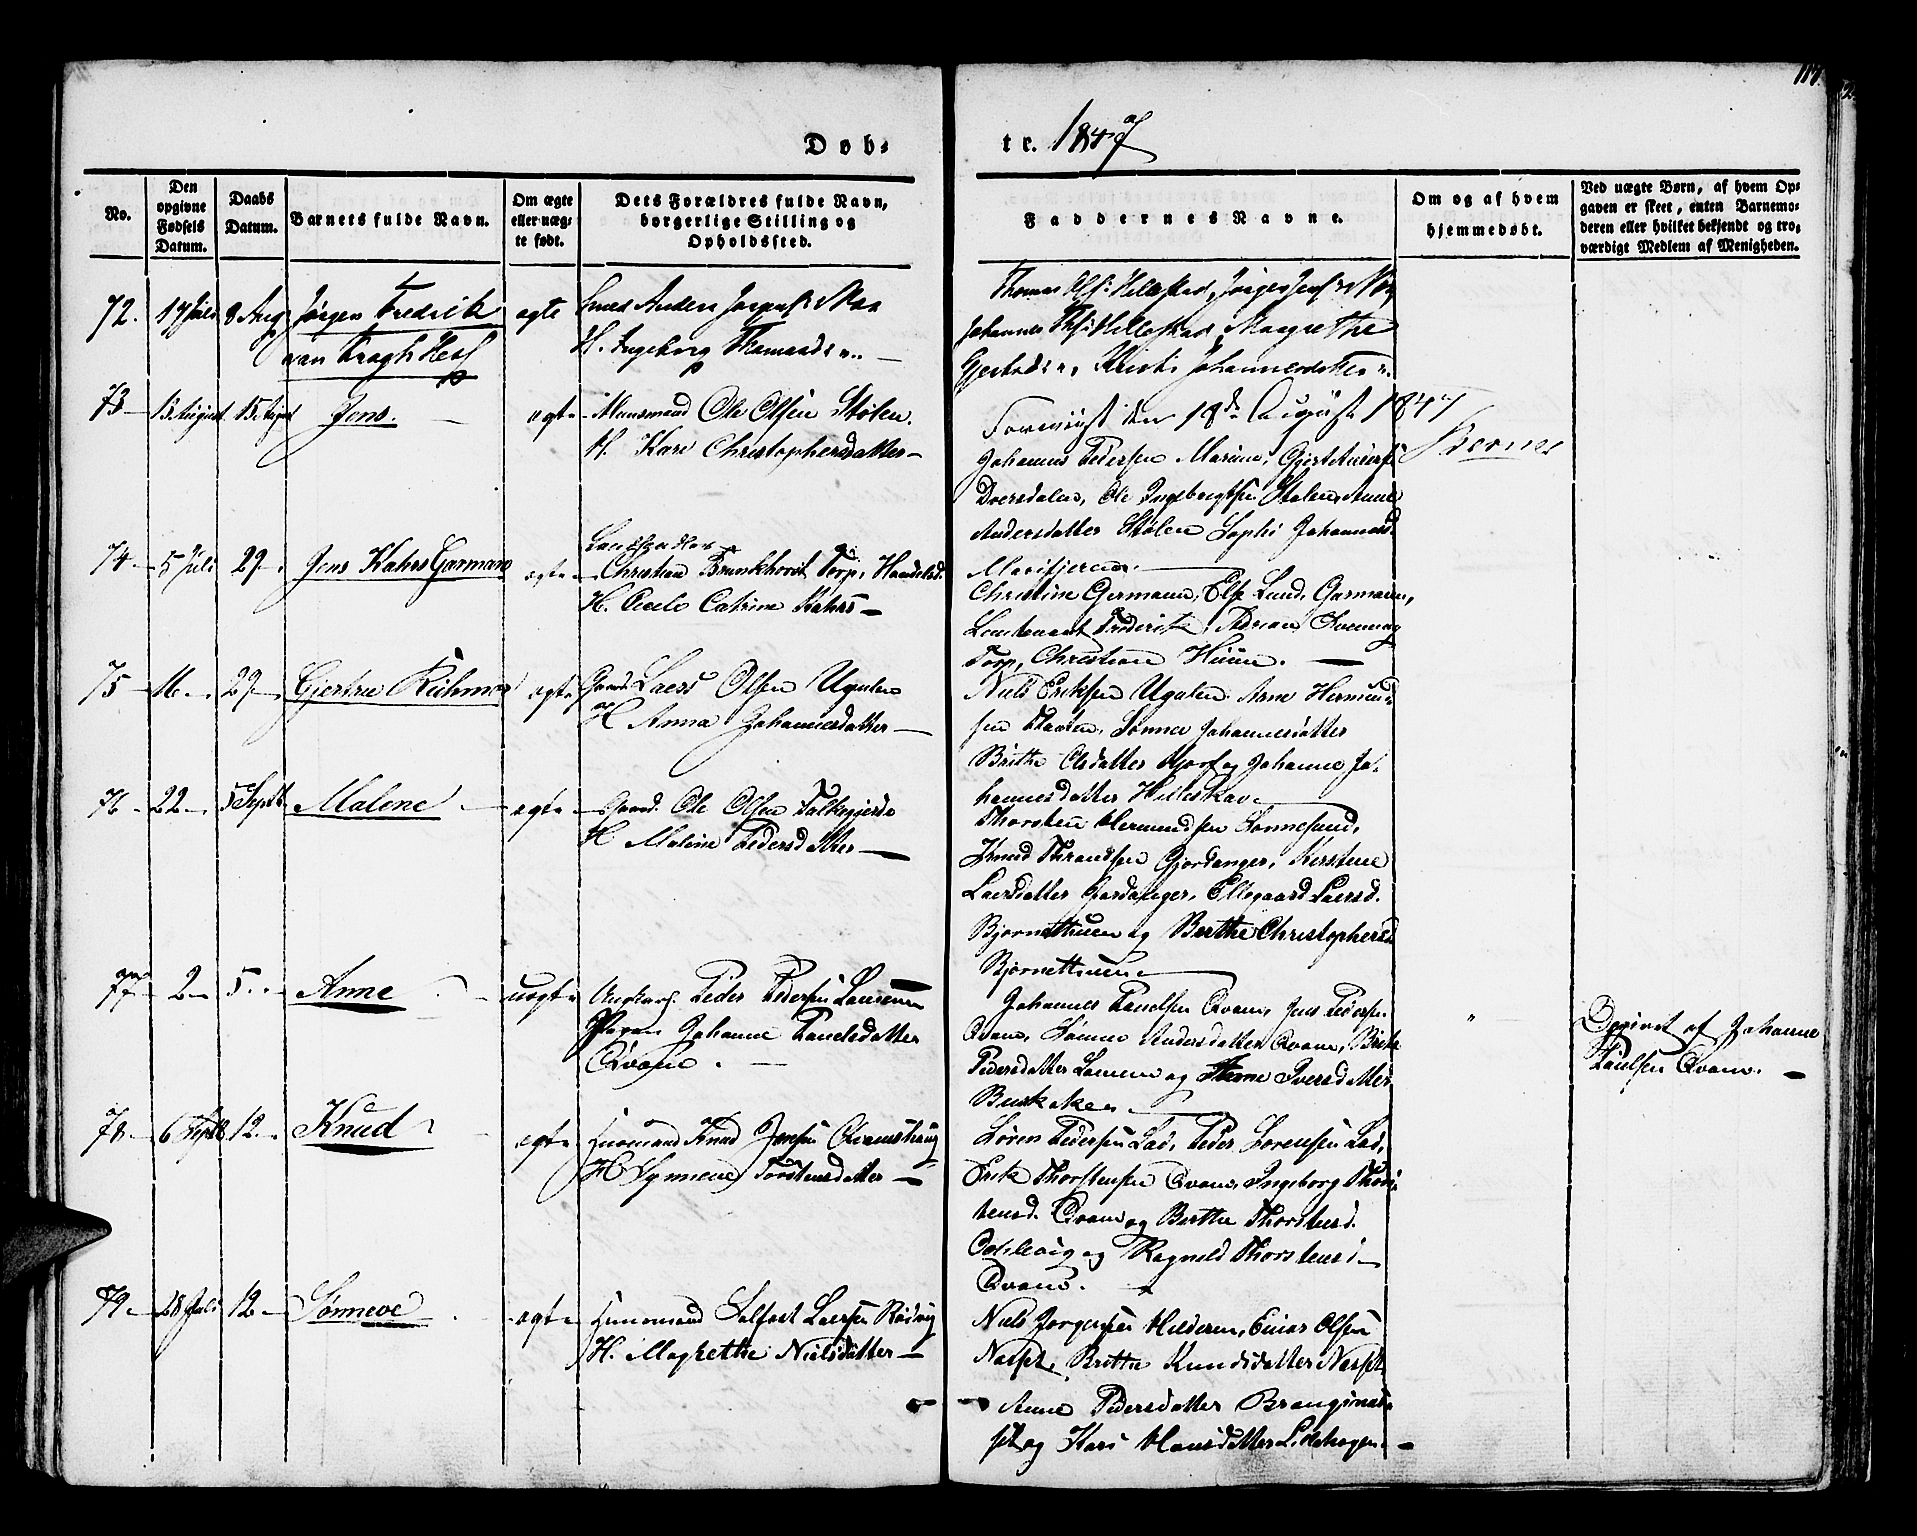 117.
Døb-
te. 1847
No.
Den opgivne Fødsels Datum.
Daabs Datum.
Barnets fulde Navn.
Om ægte eller uægte født.
Dets Forældres fulde Navn, borgerlige Stilling og Opholdssted.
Faddernes Navne.
Om og af hvem hjemmedøbt.
Ved uægte Børn, af hvem Opgaven er skeet, enten Barnemoderen eller hvilket bekjendt og troværdigt Medlem af Menigheden.
72. 17 Juli 8 Aug Jørgen Fredrik
van Kragh Hess
ægte
Anders Jørgens
H. Ingeborg Thomasd
Thomas Ols: Hilleskar, Jørgen Jens:
Johannes Ths: Hilleskar, Margrethe
Gjertsd, Kristi Johannesdatter
73 13 August 15 August Jens.
egte Huusmand Ole Olsen Stølen.
H. Kari Christophersdatter
Foreviist den 18de August 1847
Johannes Pedersen Marium, Gjert
Dversdalen, Ole Ingebregtsen Stølen, Anne
Andersdatter Stølen Sophi Johannesd.
Marifjeren.
74 5 Juli 29 Jens Kahrs Garmann
egte
Landhandler
Christian Brunkhorst Torp, Handelsd.
H. Cecele Catrine Kahrs
Christine Germann, Else Lund, Garmann,
Lieutenant Frederik, Adrian, Svenning
Torp, Christian Huun.
75 16 29 Gjertrue
egte Gaard. Laers Olsen Ugulen
H Anna Johannesdatter
Niels Eriksen Ugulen. Arne Hermund-
sen, Sønnev Johannesdatter
Brithe Olsdatter og Johanne Jo-
hannesdatter Hilleskar
76 22 5 Septb Malene
egte Gaard. Ole Olsen Falkegjerde
H Malene Pedersdatter
Thorsten Hermundsen Sonnesand,
Knud Thrandsen Gjordanger, Kerstene
Laersdatter Gardanger, Ellegaard Laersd.
Bjørnethuen og Berthe Christophersd
Bjørnethuen
77 2 5. Anne
uegte Ungkarl. Peder Pedersen
Pigen Johanne Paulsdatter
Qvame.
Johannes Paulsen Qvam, Jens Peders.
Qvam, Sønnev Andersdatter Qvam, Brithe
Pedersdatter og Anne Iversdatter
Buskaker
Opgivet af Johanne
Paulsen Qvam.
78 6 Septb 12 Knud
egte Huusmand Knud Jensen Qvamshaug
H Synneve Torstensdatter
Søren Pedersen Lad, Peder Sørensen Lad,
Erik Thorstensen Qvam, Ingeborg Thors-
tensd. Qvam og Berthe Thorstensd.
og Ragnild Thorstensd
Qvam.
79 28 Juli 12 Sønneve
egte Huusmand Laersen
H. Magrethe Nielsdatter
Niels Jørgensen Hilderen, Einar Olsen
Næset, Brithe Knudsdatter Næset
Anne Pedersdatter
og Kari Hansdatter Lidehagen